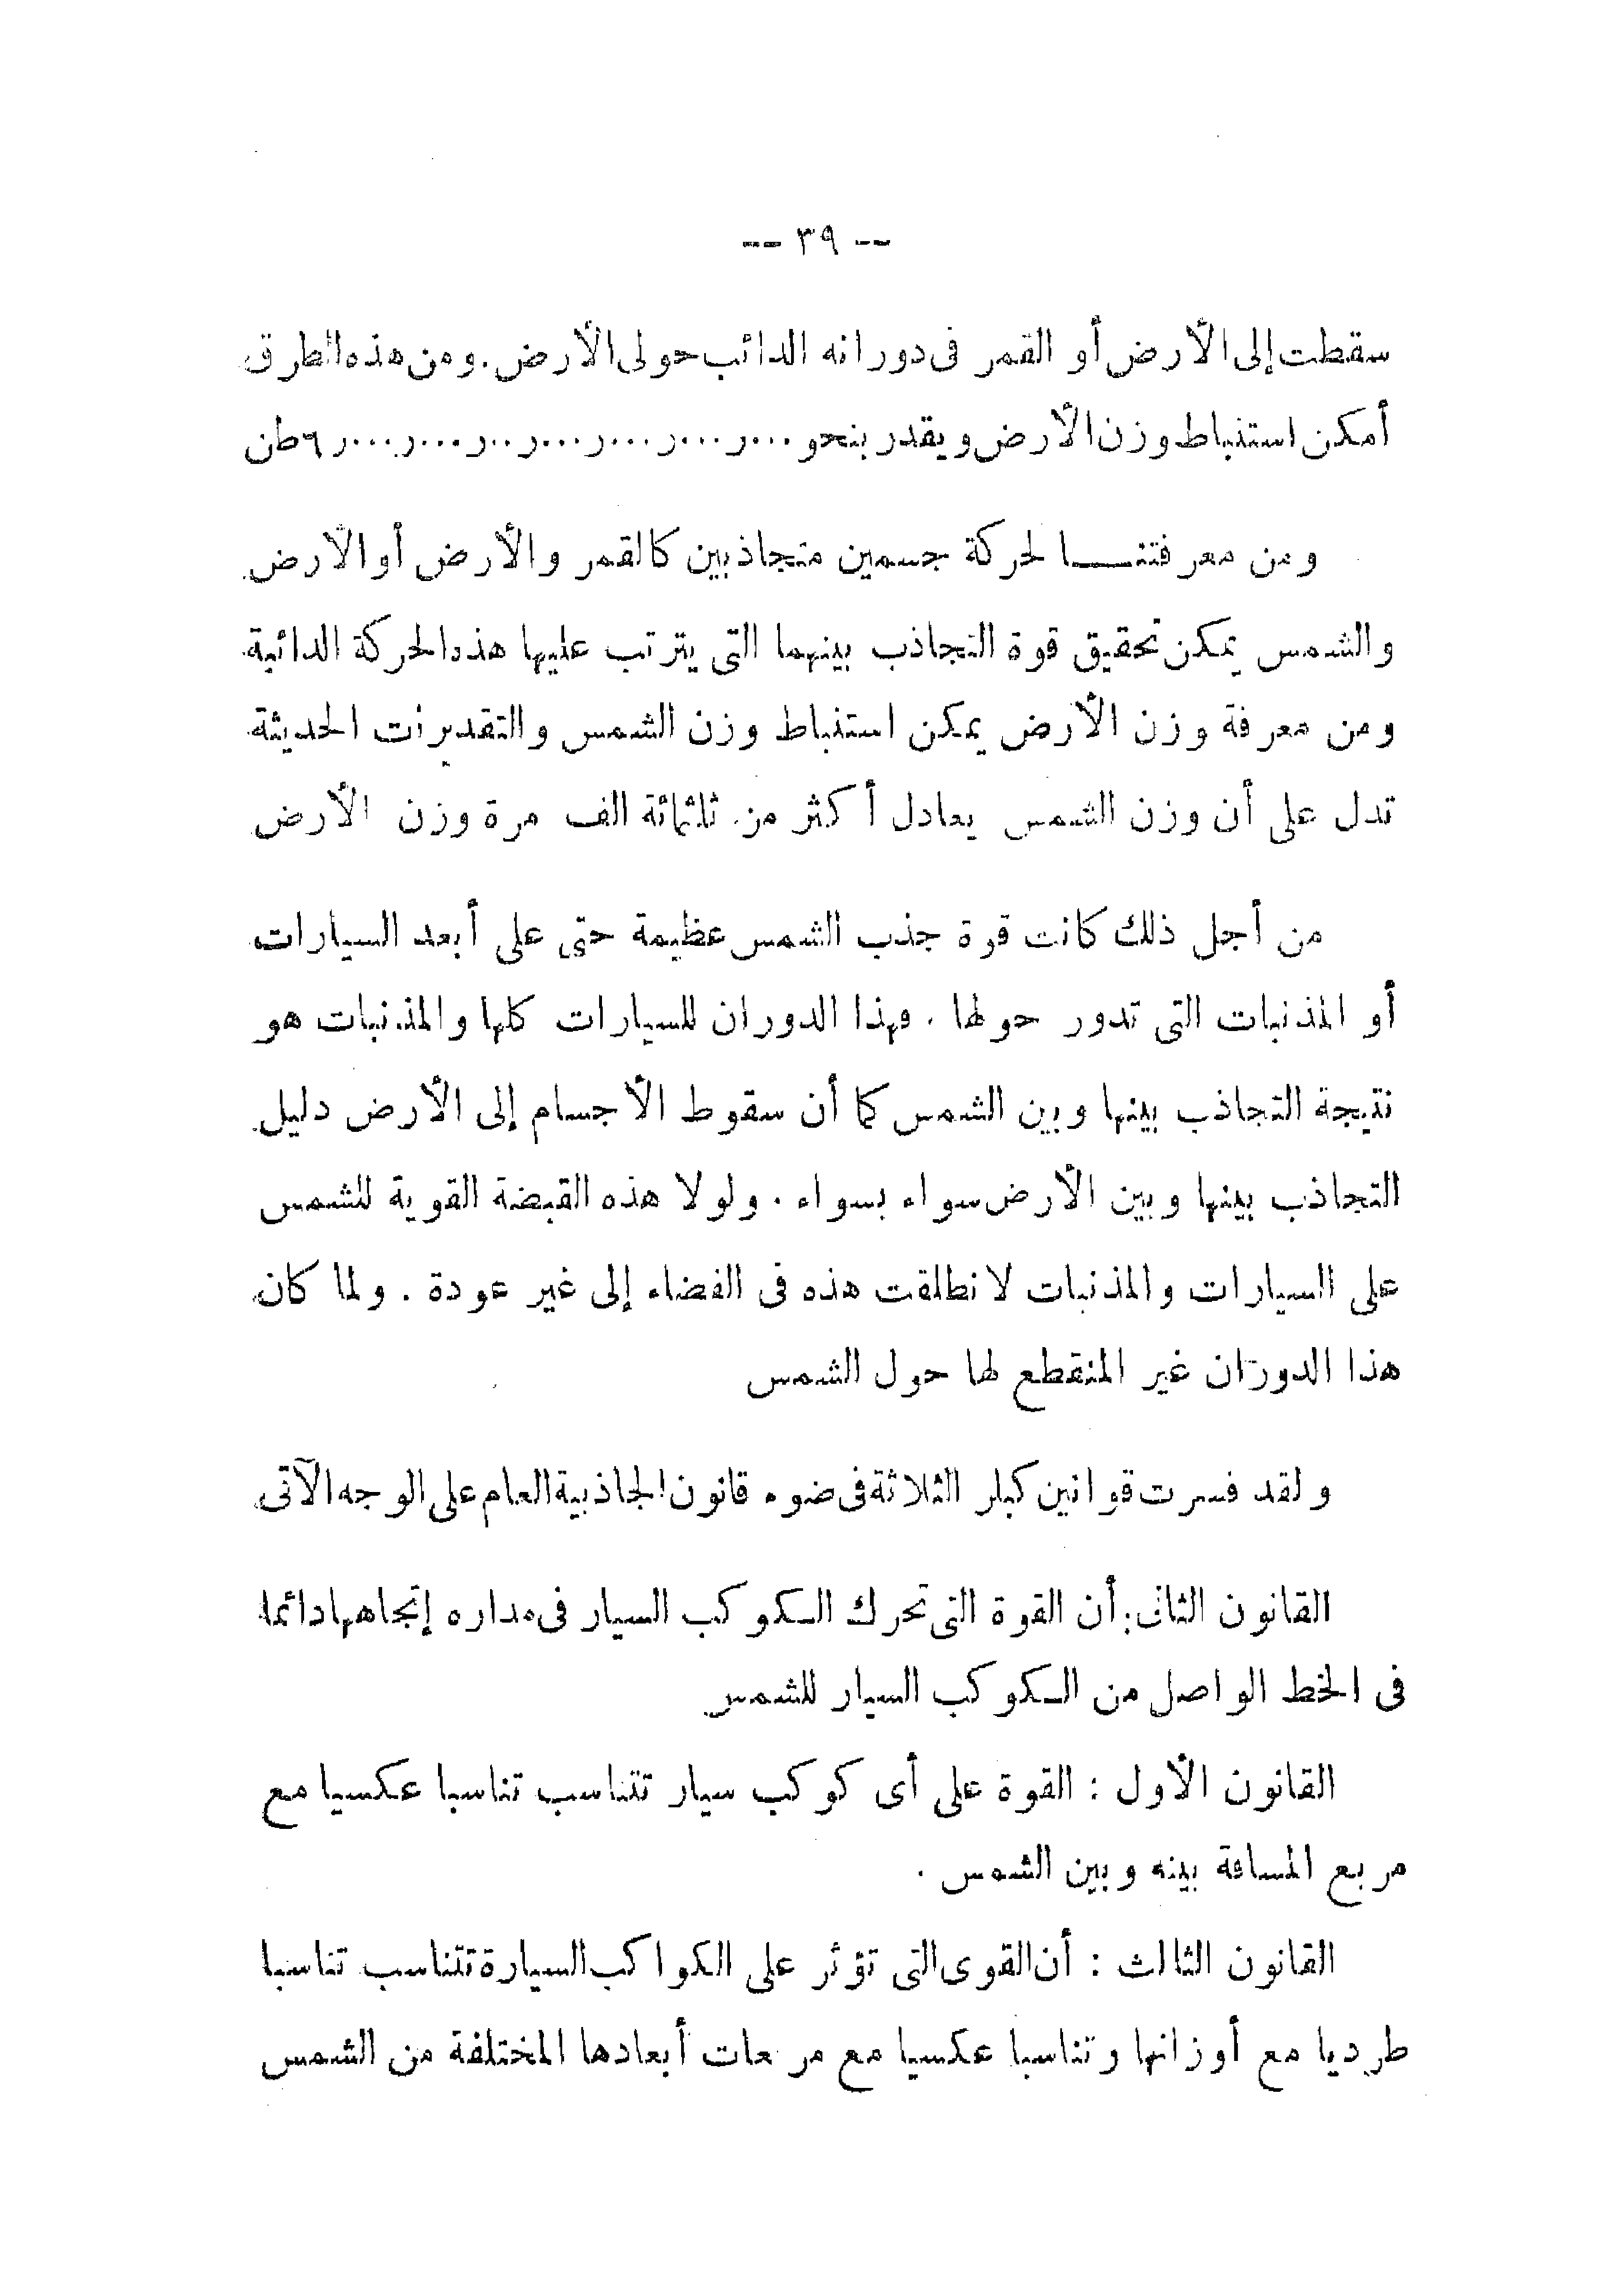 -- ٣٩ --
سقطت إلى الأرض أو القمر فى دورانه الدائب حولى الأرض. ومن هذه الطرق
أمكن استنباط وزن الأرض ويقدر بنحو ٠٠٠ر٠٠٠ر٠٠٠ر٠٠٠ر٠٠ر٠٠٠ر٠٠٠ر٦ طن
ومن معرفتنا لحركة جسمين متجاذبين كالقمر والأرض أو الأرض
والشمس يمكن تحقيق قوة التجاذب بينهما التى يترتب عليها هذه الحركة الدائبة
ومن معرفة وزن الأرض يمكن استنباط وزن الشمس والتقديرات الحديثة
تدل على أن وزن الشمس يعادل أكثر من ثلثمائة الف مرة وزن الأرض
من أجل ذلك كانت قوة جذب الشمس عظيمة حتى على أبعد السيارات
أو المذنبات التى تدور حولها . فهذا الدوران للسيارات كلها والمذنبات هو
نتيجة التجاذب بينها وبين الشمس كما أن سقوط الأجسام إلى الأرض دليل
التجاذب بينها وبين الأرض سواء بسواء . ولولا هذه القبضة القوية للشمس
على السيارات والمذنبات لانطلقت هذه فى الفضاء إلى غير عودة . ولما كان
هذا الدوران غير المنقطع لها حول الشمس
ولقد فسرت قوانين كبلر الثلاثة فى ضوء قانون الجاذبية العام على الوجه الآتى
القانون الثانى: أن القوة التى تحرك الكوكب السيار فى مداره إتجاهها دائما
فى الخط الواصل من الكوكب السيار للشمس
القانون الأول : القوة على أى كوكب سيار تتناسب تناسبا عكسيا مع
مربع المسافة بينه وبين الشمس .
القانون الثالث : أن القوى التى تؤثر على الكواكب السيارة تتناسب تناسبا
طرديا مع أوزانها وتناسبا عكسيا مع مربعات أبعادها المختلفة من الشمس